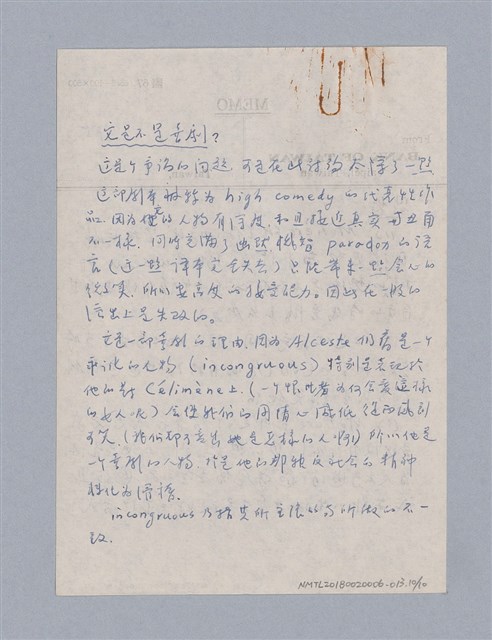 它是不是喜劇？
这是个爭論的问题，可是在此讨論太浮了一些
这部劇本被称为 high comedy 的代表性作
品，因为它的人物有深度，和且接近真实，与丑角
不一樣，同时充滿了幽默、機智、paradox 的语
言（这一些译本完全失去）只能带来一些会心的
微笑，所以要高度的接受能力。因此在一般的
演出上是失敗的。
它是一部喜劇的理由，因为 Alceste 仍舊是一个
可笑的人物（incongruous）特別是表现於
他的對 Célimène 上，（一个恨世者为何会爱這樣
的女人呢）会使我们的同情心減低，從而感到
可笑，（我们都可看出她是怎樣的人啊）所以他是
一个喜劇的人物，於是他的那種反社会的精神
性化为滑稽。
incongruous 乃指其所主張的与所做的不一
致．
MEMO
NMTL20180020006-013.10/10